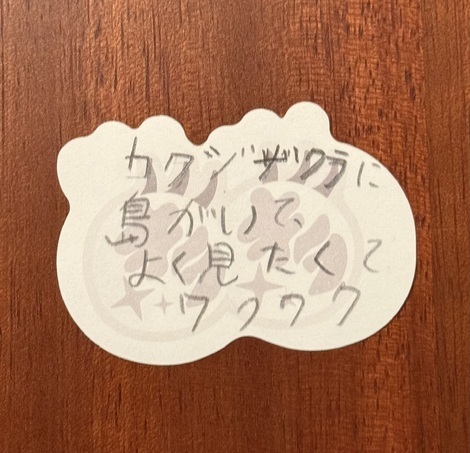 カタシザクラに
島がいて、
よく見たくて
ワクワク